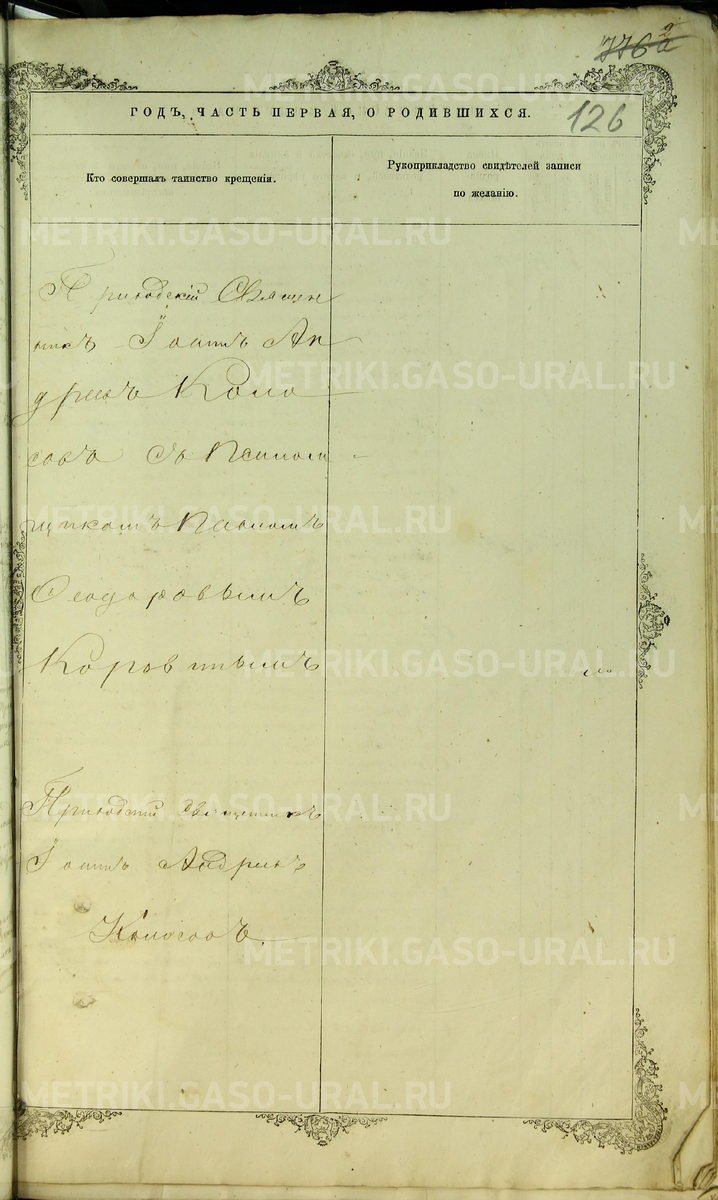 126
ГОДЪ, ЧАСТЬ ПЕРВАЯ, О РОДИВШИХСЯ.
Кто совершалъ таинство крещенія.
Рукоприкладство свидѣтелей записи
по желанію.
Приходскій Священ
никъ Іоаннъ Ан
дреевъ Коло
совъ съ Псалом
щикомъ
Ѳеодоровымъ
Приходскій священникъ
Іоаннъ Андреевъ
Колосовъ.
METRIKI.GASO-URAL.RU